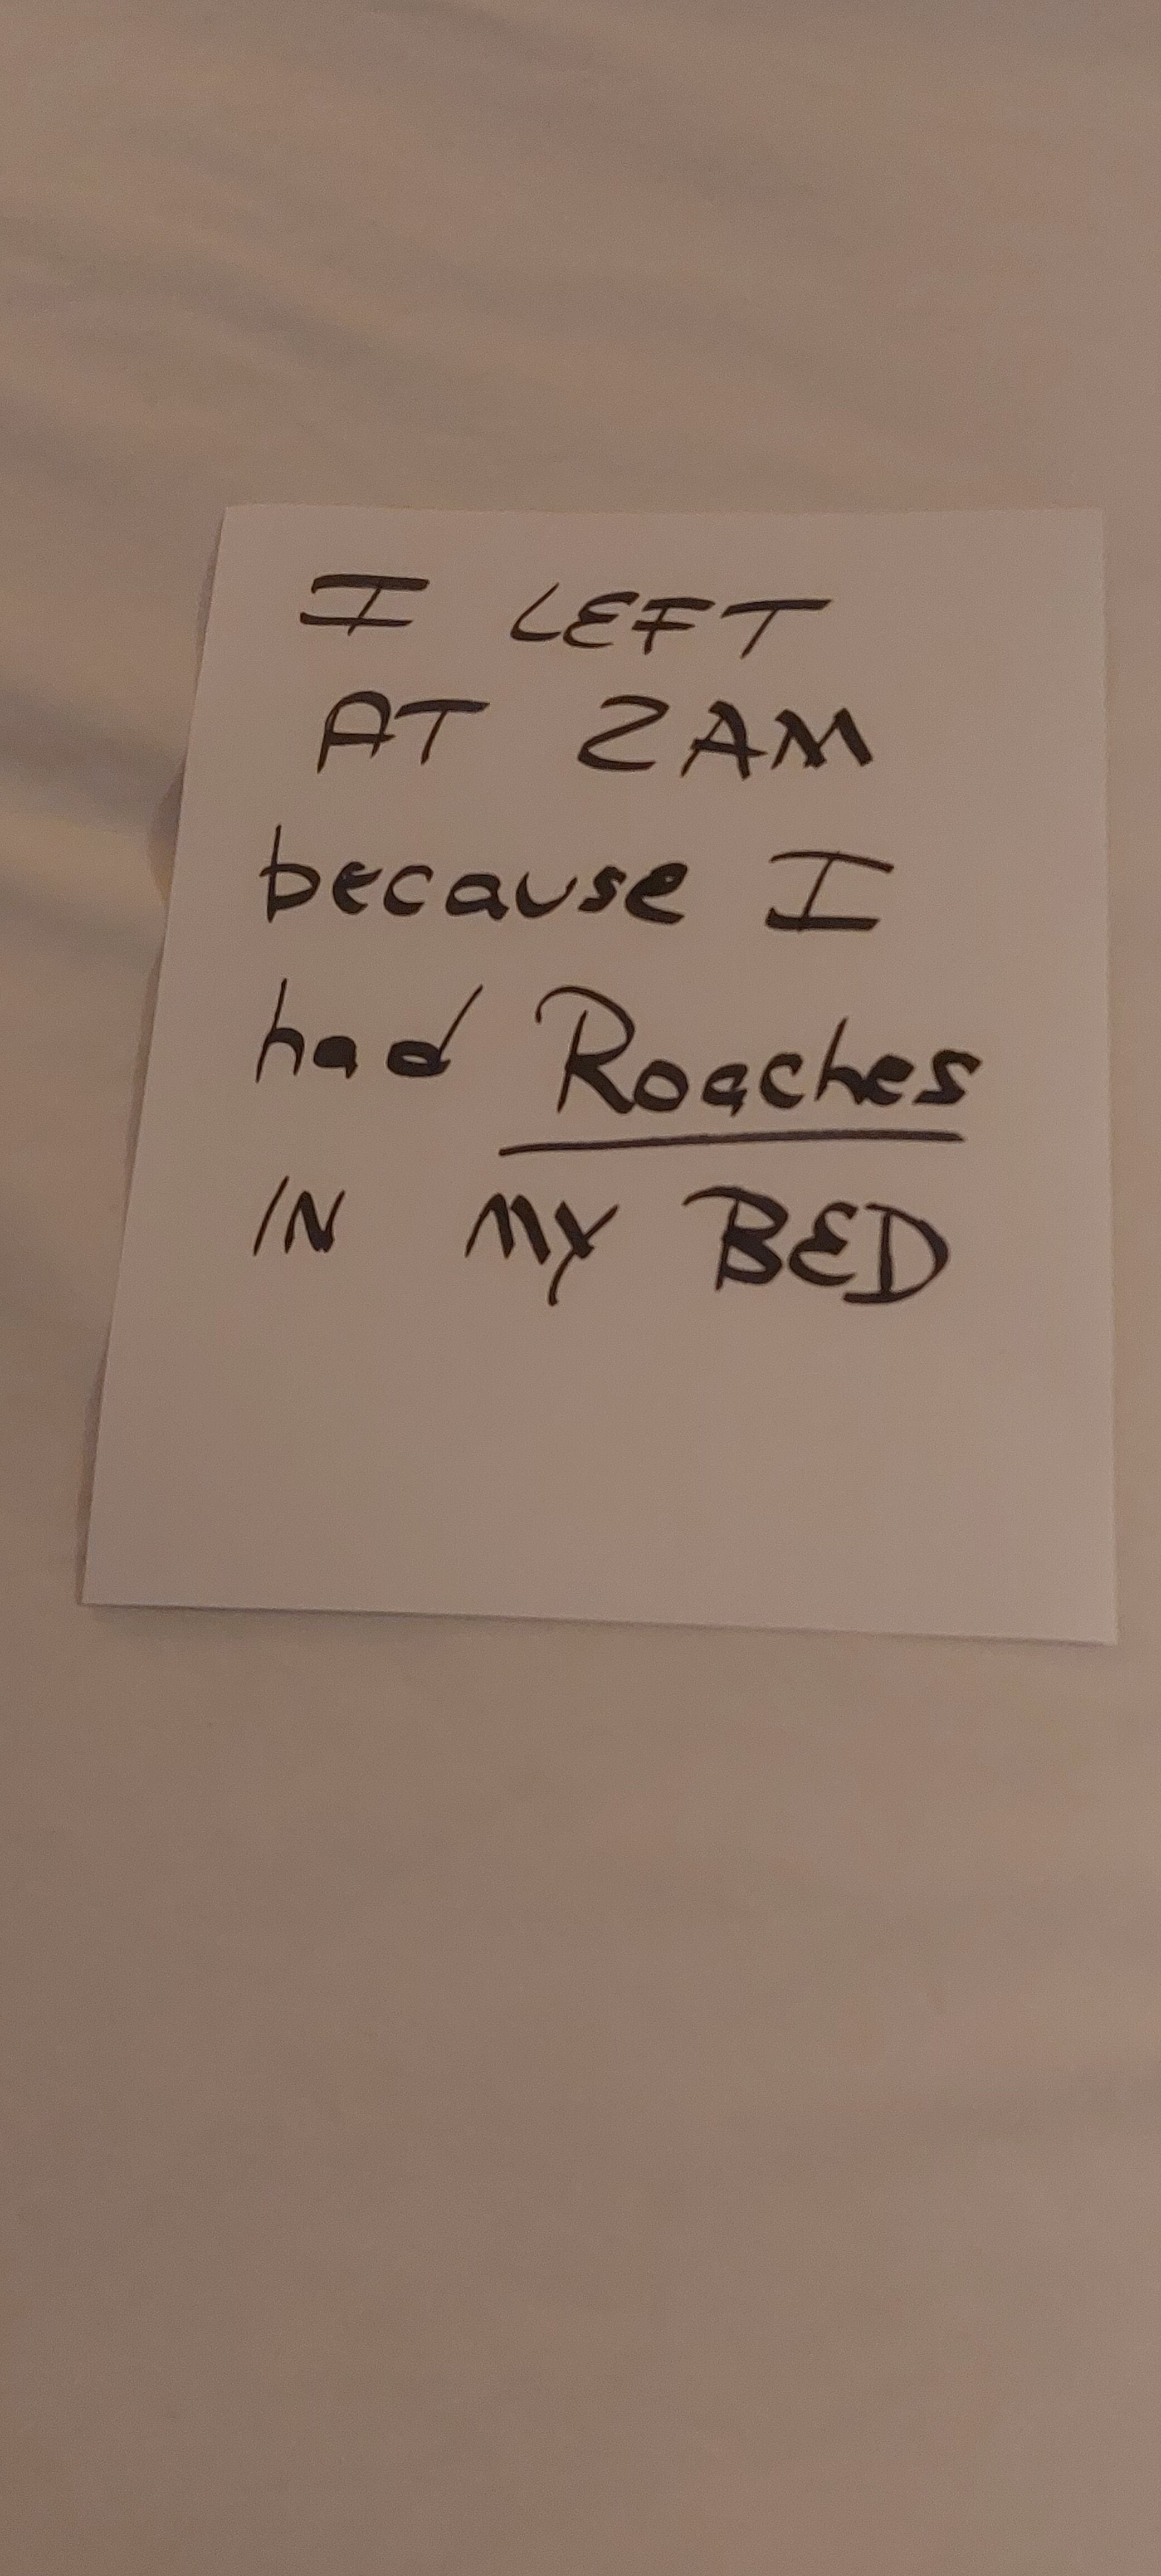 I LEFT
AT 2AM
because I
had Roaches
IN MY BED